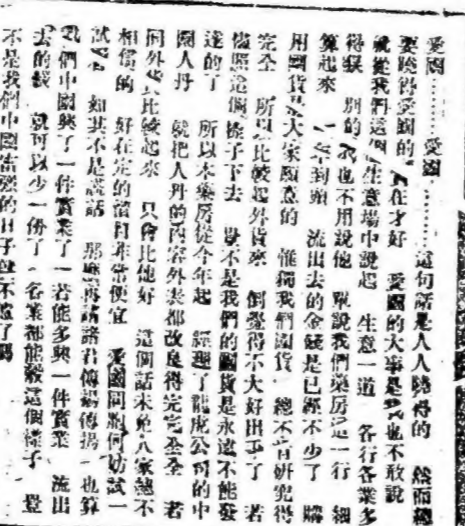 愛國………愛國………這句話是人人曉得的 然而總
要曉得愛國的 在才好 愛國的大事是 也不敢說
就從我們這個生意場中說起 生意一道 各行各業多
得狠 別的我也不用說他 單說我們藥房這一行 細
算起來 年到頭 流出去的金錢是已經不少了 購
用國貨 大家願意的 惟獨我們國貨 總不肯研究得
完全 所以比較起外貨來 倒覺得不大好出手了 若
儘照這個樣子下去 豈不是我們的國貨是永遠不能發
達的了 所以本藥房從今年起 經理了龍虎公司的中
國人丹 就把人丹的內容外表都改良得完完全全 若
同外貨比較起來 只會比他好 這個話未免大家總不
相信的 好在完的價目非常便宜 愛國同胞何妨試一
試 如其不是謊話 那麼再請諸君傳揚傳揚 也算
我們中國興了一件實業了 若能多興一件實業 流出
去的錢 就可以少一份了 各業都能彀這個樣子 豈
不是我們中國富强的日子 不遠了嗎